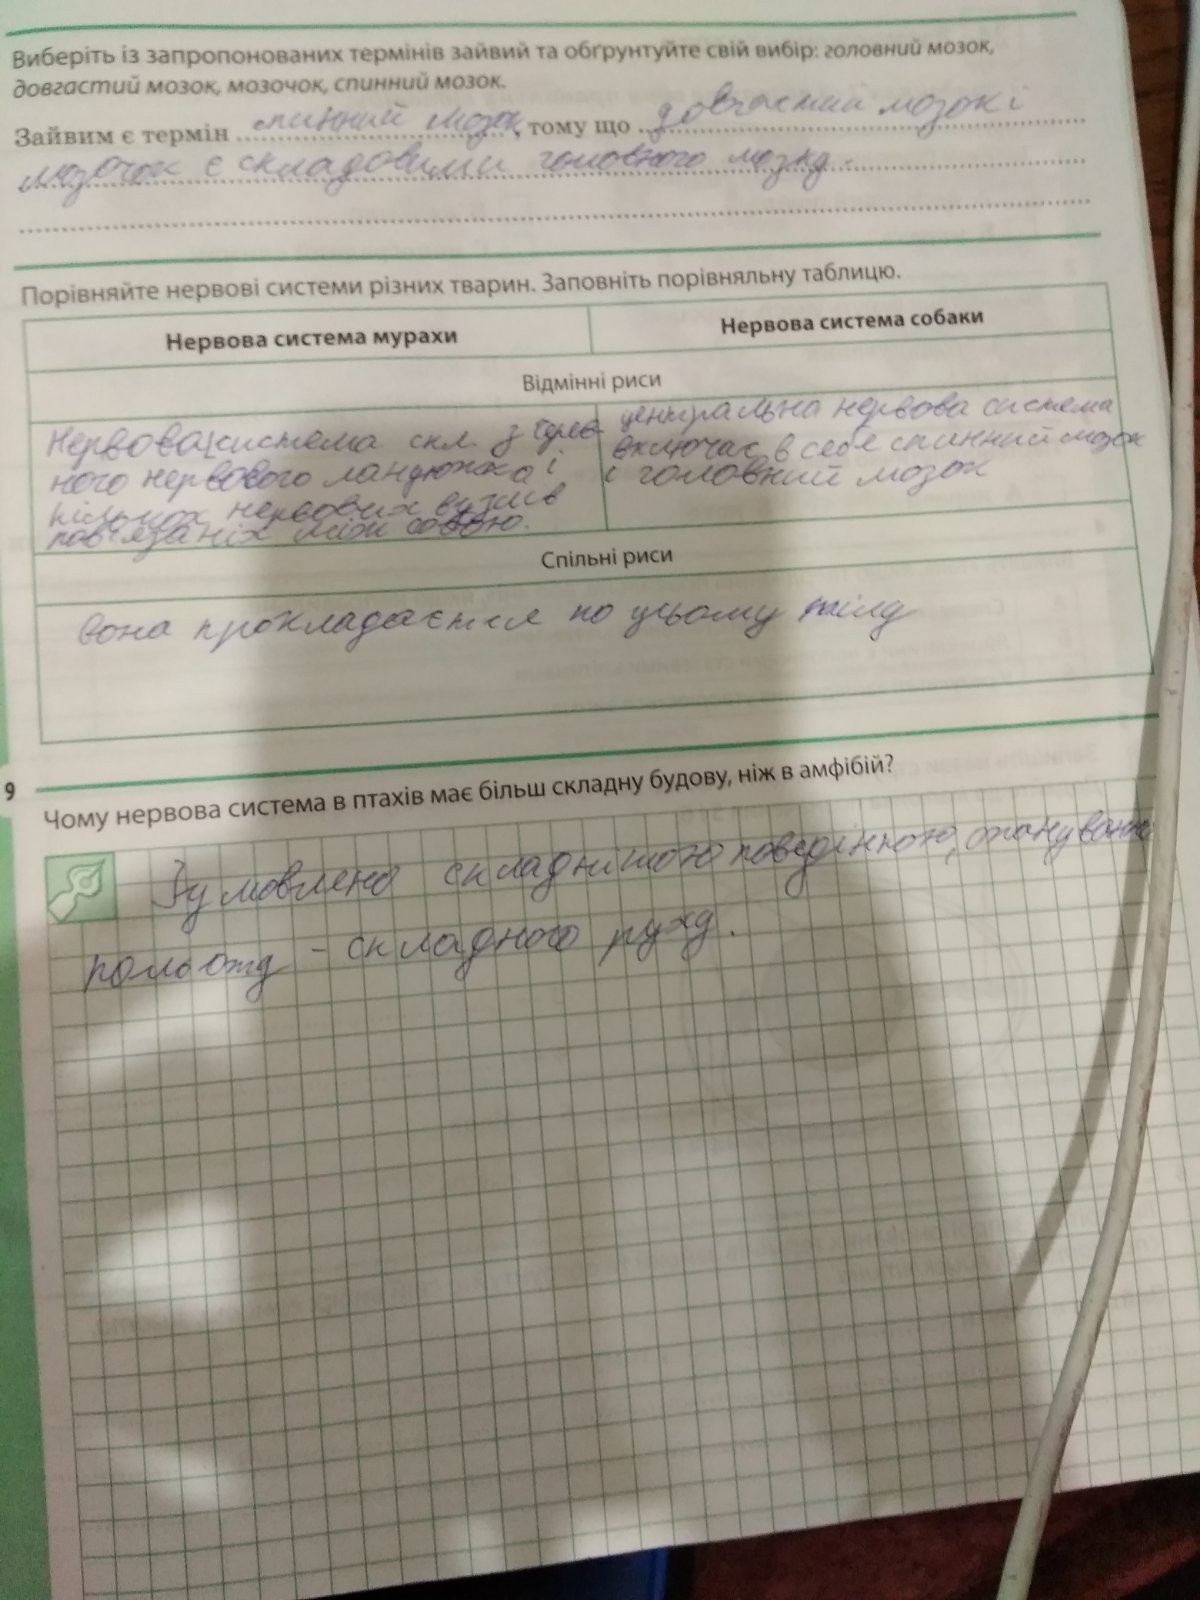 Виберіть із запропонованих термінів зайвий та обґрунтуйте свій вибір: головний мозок,
довгастий мозок, мозочок, спинний мозок.
Зайвим є термін спинний мозок, тому що довгастий мозок і
мозочок є складовими головного мозку.
Порівняйте нервові системи різних тварин. Заповніть порівняльну таблицю.
Нервова система мурахи
Нервова система собаки
Відмінні риси
Нервова система скл. з черев-
ного нервового ланцюжка і
кількох нервових вузлів
пов'язаніх між собою.
центральна нервова система
включає в себе спинний мозок
і головний мозок
Спільні риси
вона прокладається по цьому тілу
9
Чому нервова система в птахів має більш складну будову, ніж в амфібій?
Зумовлено складнішою поведінкою, опанування
польоту - складного руху.